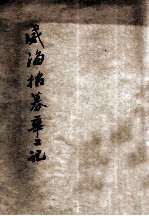 威海招募華工記